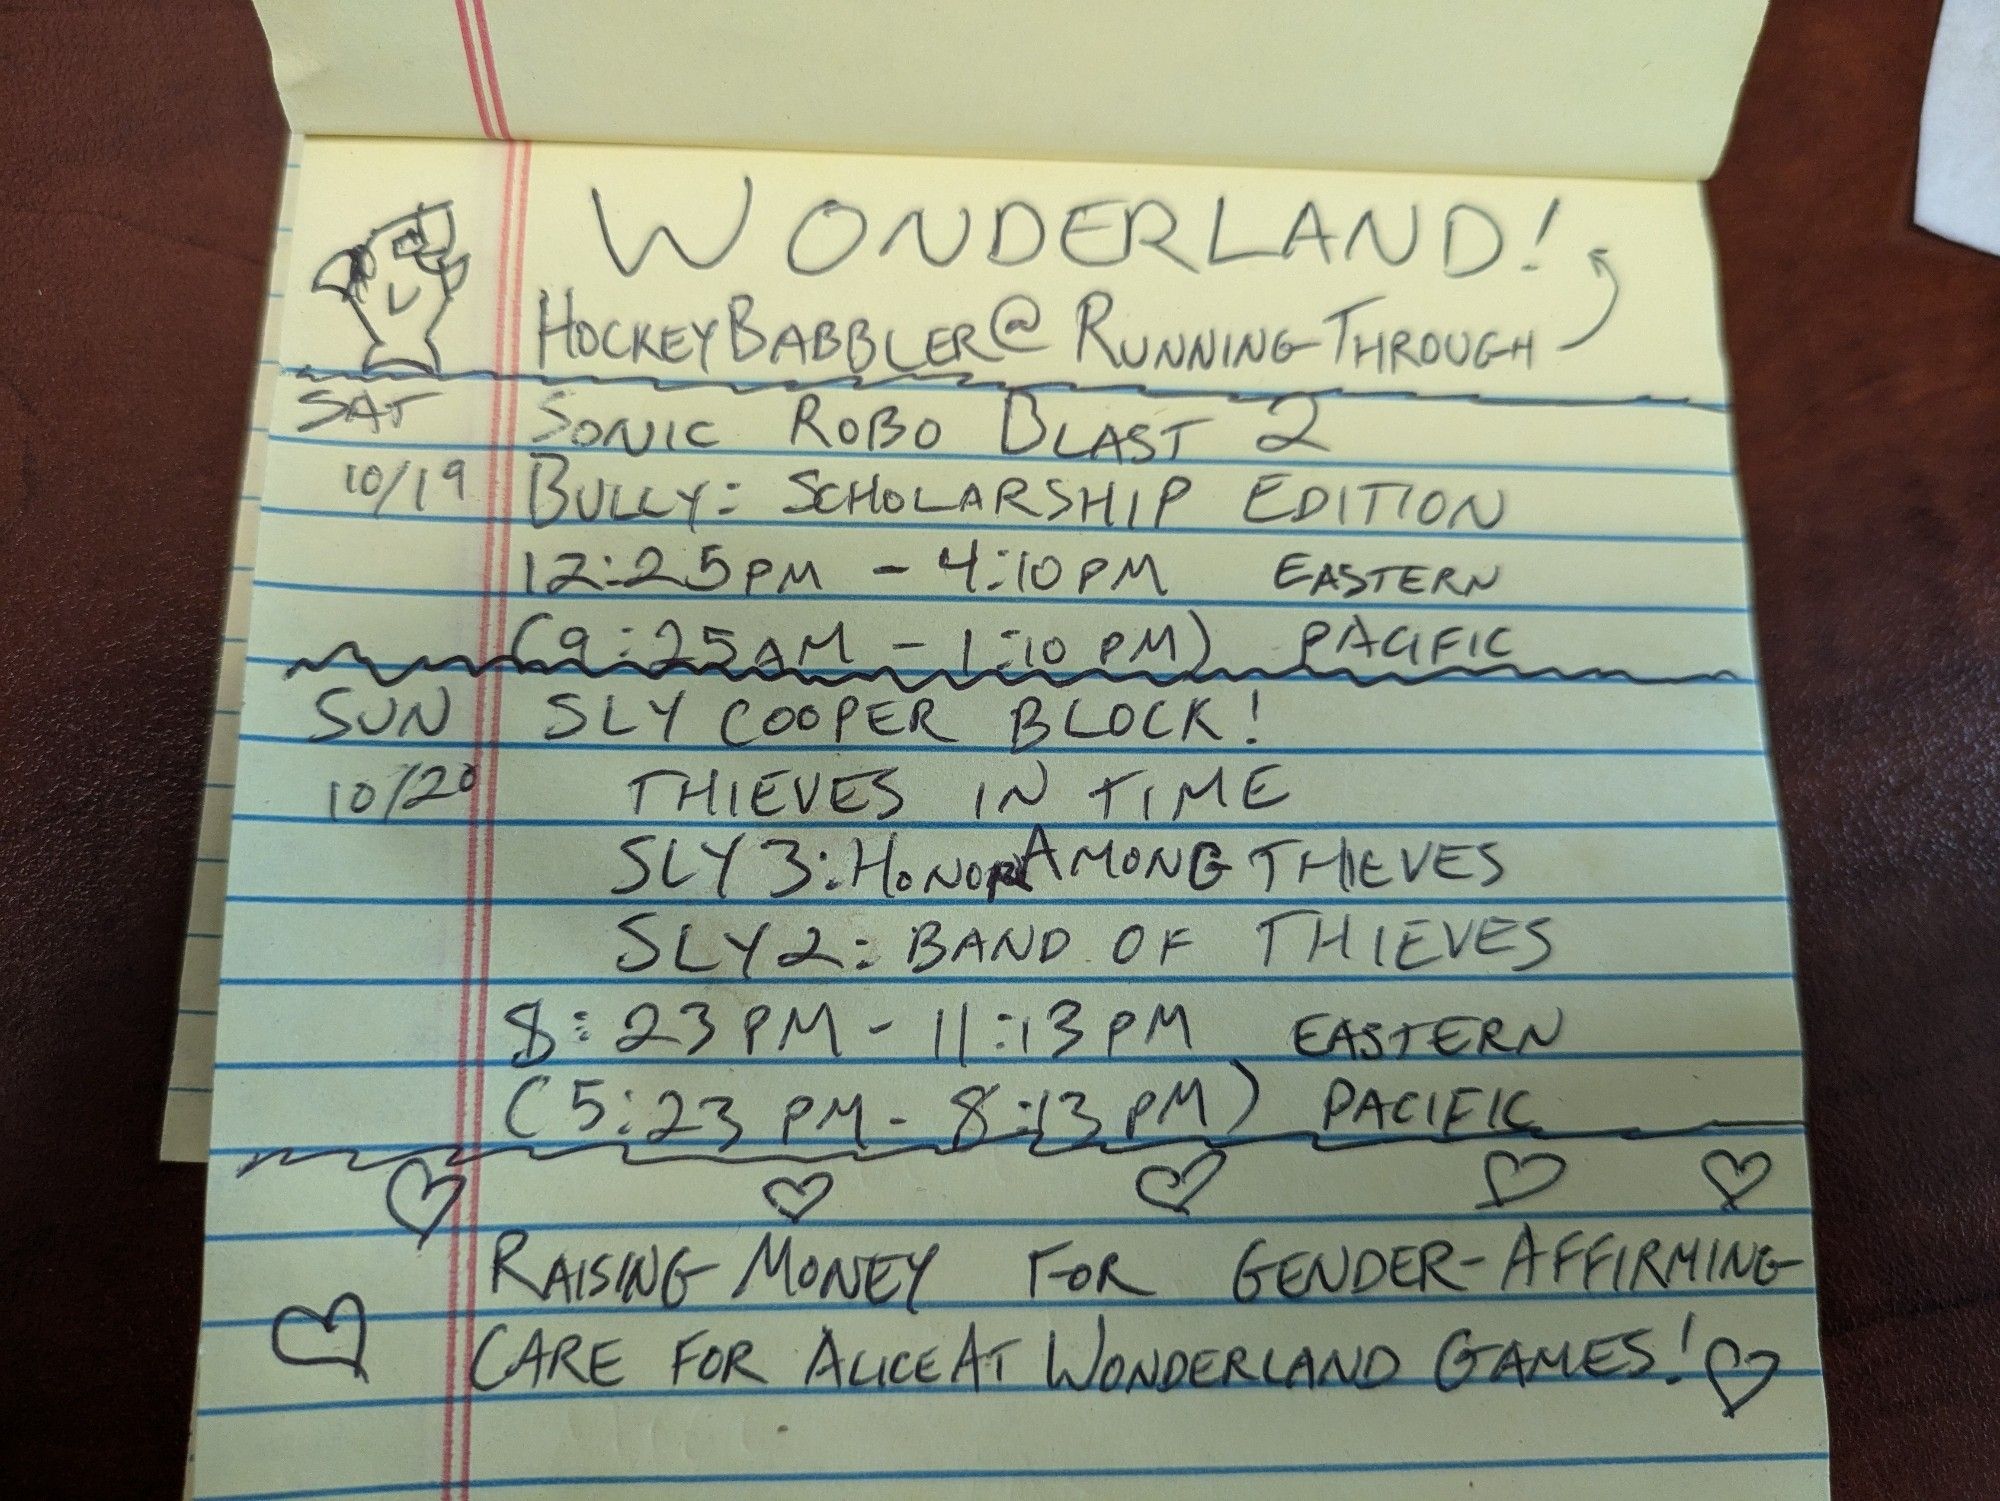 WONDERLAND!
HOCKEYBABBLER@RUNNINGTHROUGH
SAT SONIC ROBO BLAST 2
10/19 BULLY: SCHOLARSHIP EDITION
12:25PM - 4:10PM EASTERN
(9:25AM - 1:10PM) PACIFIC
SUN SLY COOPER BLOCK!
10/20 THIEVES IN TIME
SLY 3: HONOR AMONG THIEVES
SLY 2: BAND OF THIEVES
8:23PM - 11:13PM EASTERN
(5:23PM - 8:13PM) PACIFIC
RAISING MONEY FOR GENDER-AFFIRMING
CARE FOR ALICE AT WONDERLAND GAMES!